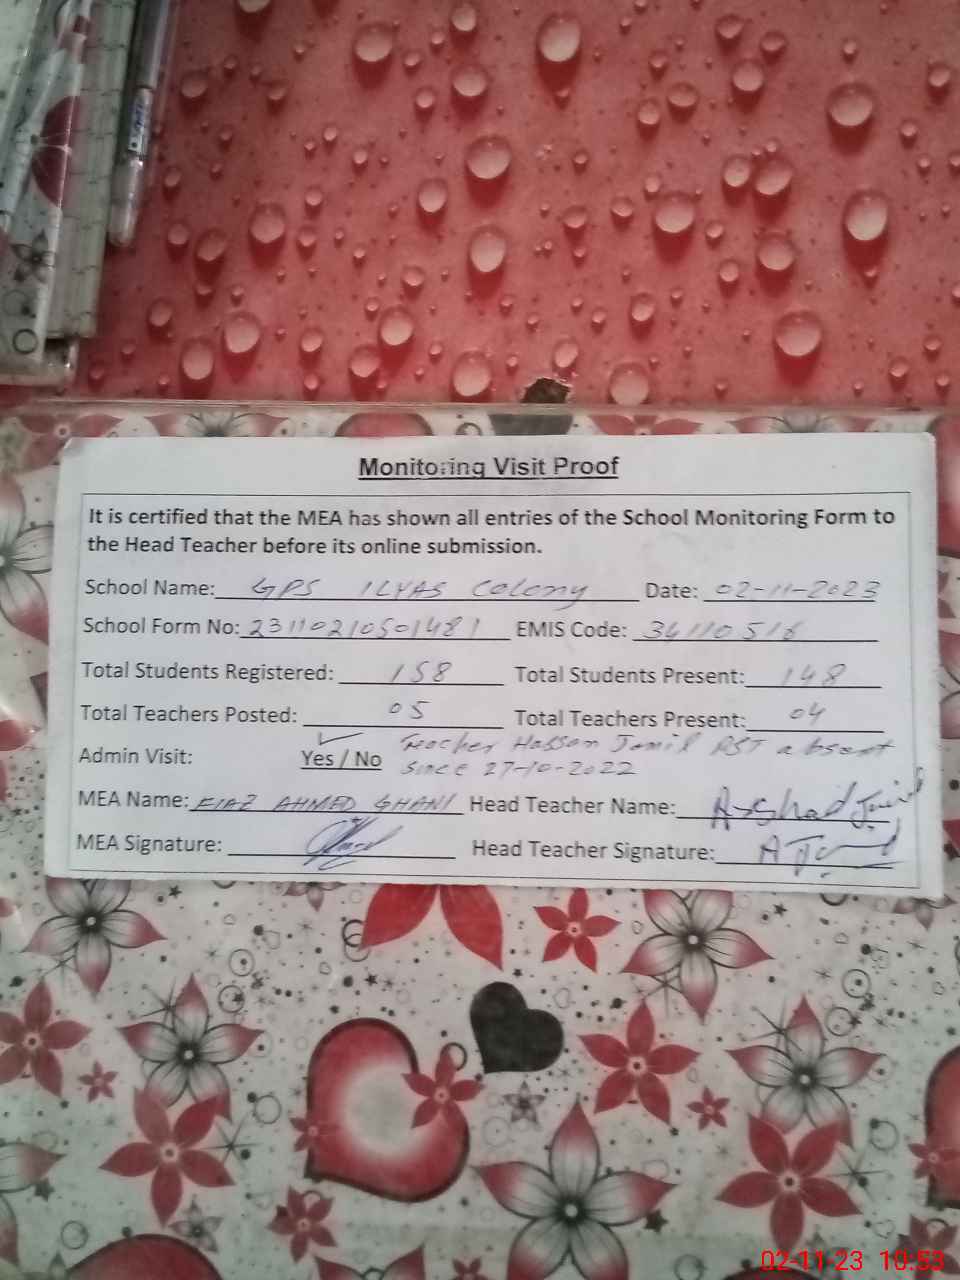 Monitoring Visit Proof
It is certified that the MEA has shown all entries of the School Monitoring Form to
the Head Teacher before its online submission.
School Name: GPS ILYAS Colony Date: 02-11-2023
School Form No: 23110210501481 EMIS Code: 34110516
Total Students Registered: 158 Total Students Present: 148
Total Teachers Posted: 05 Total Teachers Present: 04
Admin Visit: Yes / No Teacher Hassan Jamil PST absent
since 27-10-2022
MEA Name: FIAZ AHMED GHANI Head Teacher Name: Arshad Javid
MEA Signature: Head Teacher Signature:
02-11-23 10:53